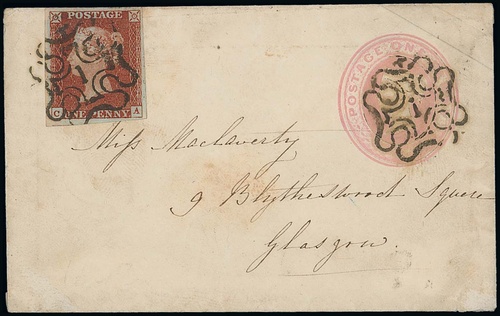 POSTAGE
C ONE PENNY A
POSTAGE ONE
Miss Maclaverty
9 Blytheswood Square
Glasgow.